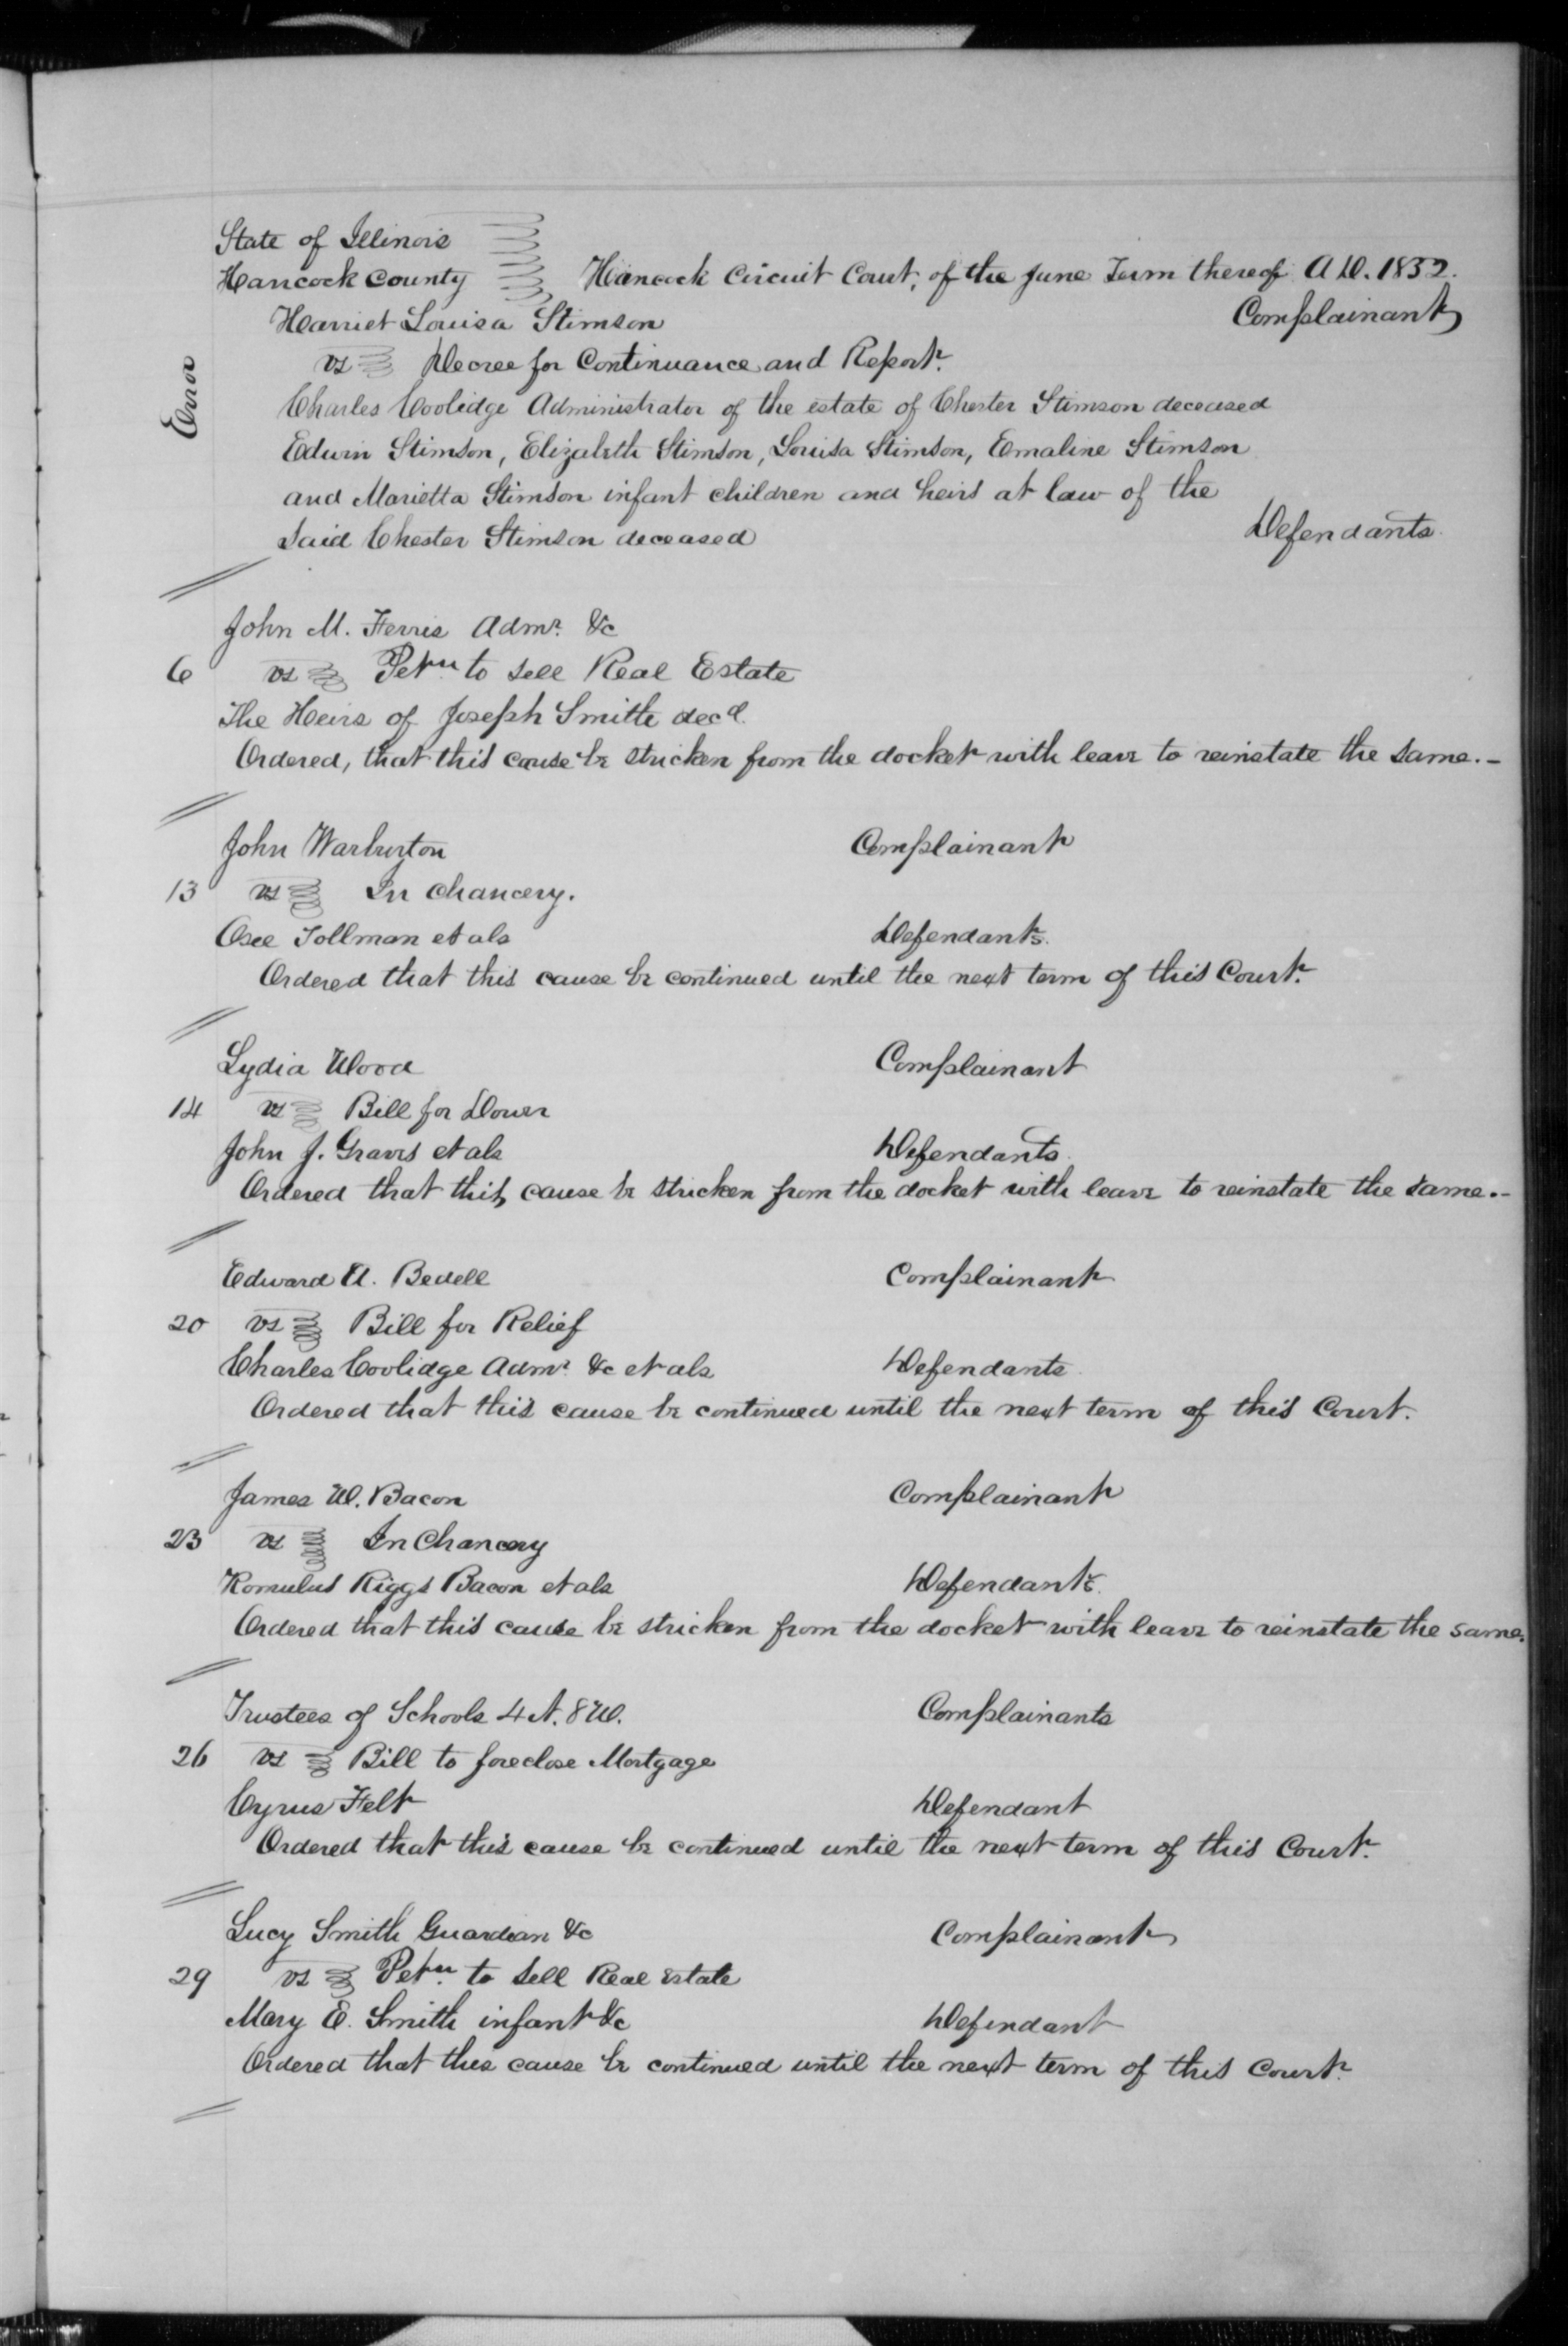 State of Illinois
Hancock County Hancock Circuit Court, of the June Term thereof A.D. 1852.
Harriet Louisa Stimson Complainant
vs Decree for Continuance and Report.
Error
Charles Coolidge Administrator of the estate of Chester Stimson deceased
Edwin Stimson, Elizabeth Stimson, Louisa Stimson, Emaline Stimson
and Marietta Stimson infant children and heirs at law of the
said Chester Stimson deceased Defendants.
John M. Ferris Admr. &c
6 vs Petn. to sell Real Estate
The Heirs of Joseph Smith decd.
Ordered, that this cause be stricken from the docket with leave to reinstate the same.-
John Warburton Complainant
13 vs In Chancery.
Osee Tollman et als Defendants.
Ordered that this cause be continued until the next term of this Court.
Lydia Wood Complainant
14 vs Bill for Dower
John J. Graves et als Defendants.
Ordered that this, cause be stricken from the docket with leave to reinstate the same.-
Edward A. Bedell Complainant
20 vs Bill for Relief
Charles Coolidge Admr. &c et als Defendants.
Ordered that this cause be continued until the next term of this Court.
James W. Bacon Complainant
23 vs In Chancery
Romulus Riggs Bacon et als Defendants.
Ordered that this cause be stricken from the docket with leave to reinstate the same.
Trustees of Schools 4 N. 8 W. Complainants
26 vs Bill to foreclose Mortgage
Cyrus Felt Defendant
Ordered that this cause be continued until the next term of this Court.
Lucy Smith Guardian &c Complainant
29 vs Petn. to sell Real Estate
Mary E. Smith infant &c Defendant
Ordered that this cause be continued until the next term of this Court.